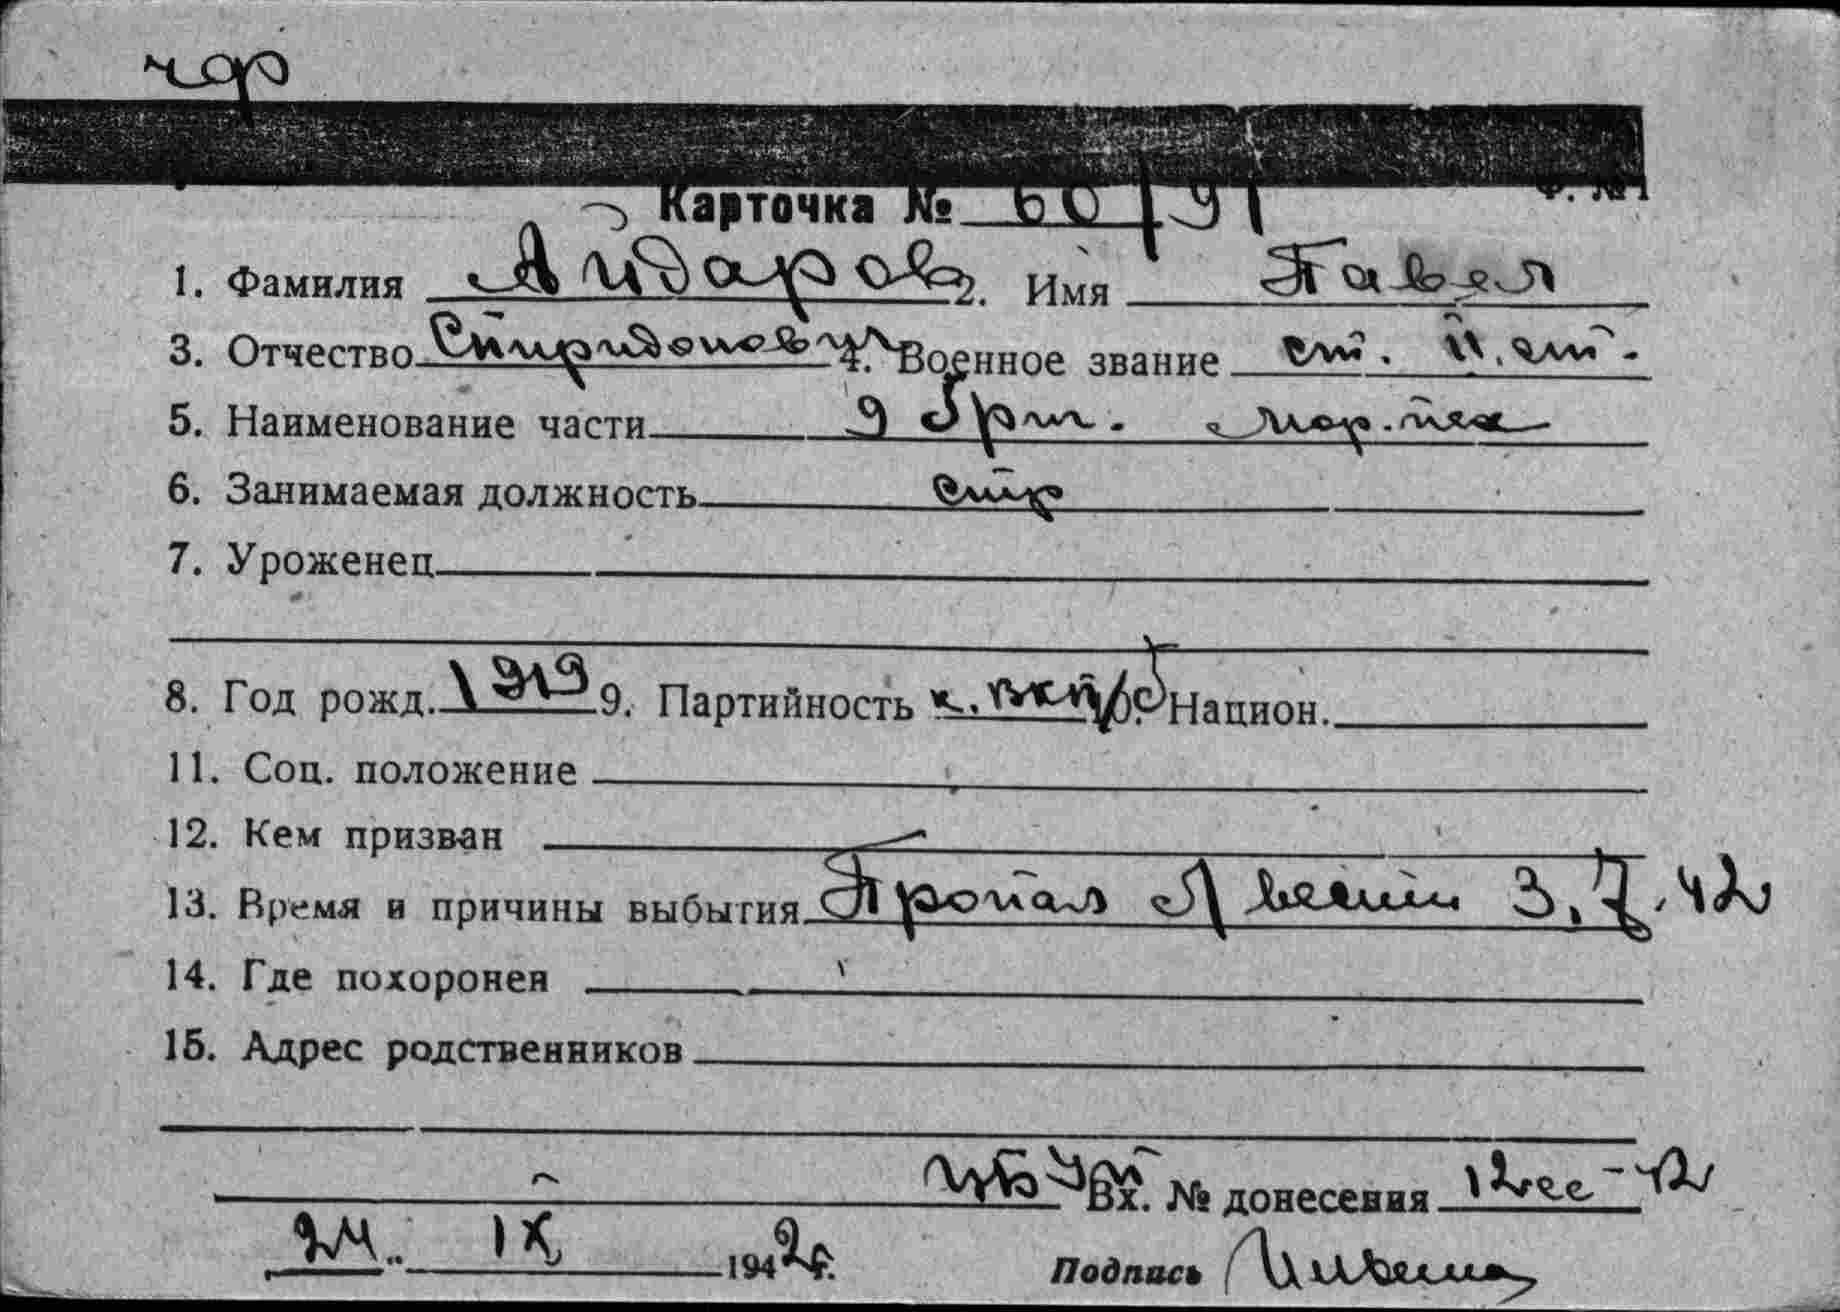 чф
Карточка № 60/91 Ф. № 1
1. Фамилия Айдаров 2. Имя Павел
3. Отчество Спиридонович 4. Военное звание ст. II. ст.
5. Наименование части 9 бриг. мор. пех
6. Занимаемая должность стр
7. Уроженец
8. Год рожд. 1919 9. Партийность к. ВКП/б 10. Национ.
11. Соц. положение
12. Кем призван
13. Время и причины выбытия Пропал б/вести 3.7.42
14. Где похоронен
15. Адрес родственников
Вх. № донесения
24 " IX 1942 г. Подпись